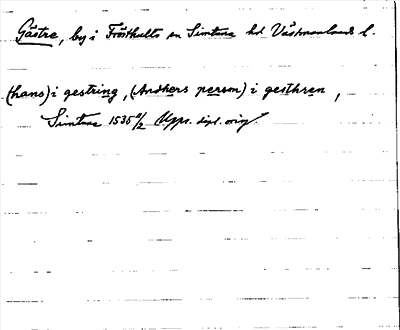 Gästre, by i Frösthults sn Simtuna hd Västmanlands l.
(hans) i gestring, (Anders person) i gesthren,
Simtuna 1535 /2 Upps. dipl. orig.